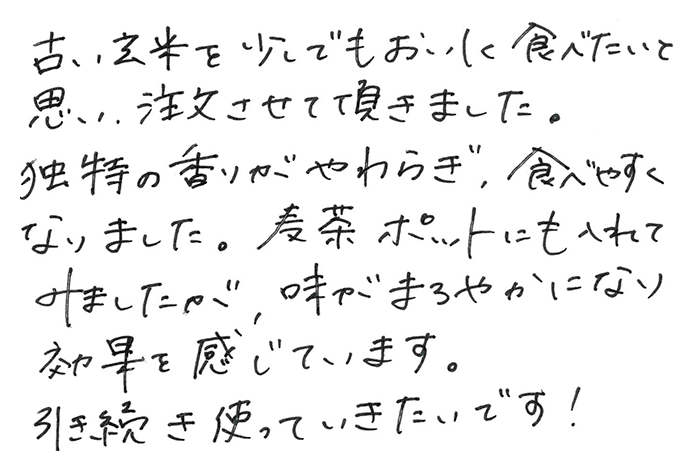 古い玄米を少しでもおいしく食べたいと
思い、注文させて頂きました。
独特の香りがやわらぎ、食べやすく
なりました。麦茶ポットにも入れて
みましたが、味がまろやかになり
効果を感じています。
引き続き使っていきたいです！